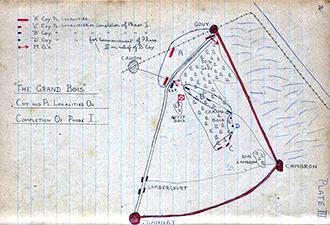 'A' Coy PL LOCALITIES
'C' Coy PL LOCALITIES on Completion of Phase I.
'B' Coy " " "
'D' Coy " " for Commencement of Phase
II in relief of 'B' Coy
M.G's
GOUY
CAHON
A
"THE GRAND BOIS"
COY AND PL LOCALITIES ON
COMPLETION OF PHASE I.
PETIT
BOIS
GRAND
BOIS
B
D
BOIS
CAMBRON
CAMBRON
LAMBERCOURT
MIANNAY
PLATE III